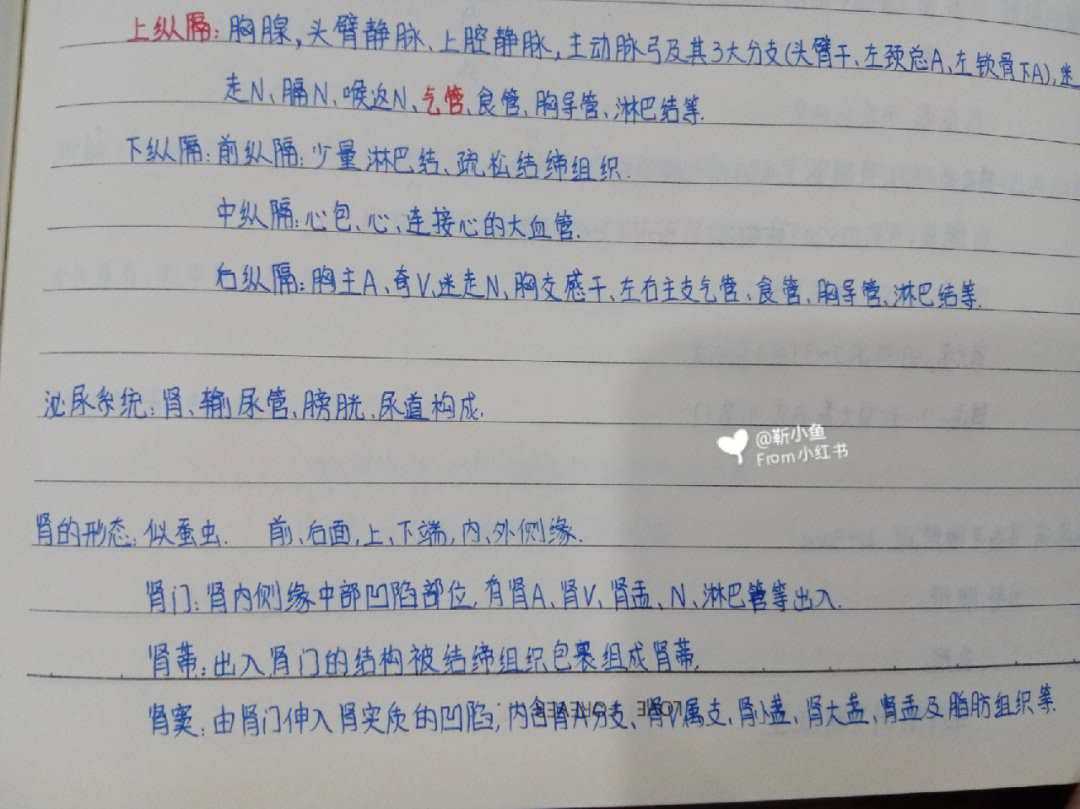 上纵膈:胸腺,头臂静脉、上腔静脉,主动脉弓及其3大分支(头臂干、左颈总A、左锁骨下A),迷
走N、膈N、喉返N、气管、食管、胸导管、淋巴结等.
下纵隔:前纵隔:少量淋巴结、疏松结缔组织.
中纵隔:心包、心、连接心的大血管.
后纵隔:胸主A、奇V、迷走N、胸交感干、左右主支气管、食管、胸导管、淋巴结等.
泌尿系统:肾、输尿管、膀胱、尿道构成.
@靳小鱼
From小红书
肾的形态:似蚕虫. 前、后面,上、下端,内、外侧缘.
肾门:肾内侧缘中部凹陷部位,有肾A、肾V、肾盂、N、淋巴管等出入.
肾蒂:出入肾门的结构被结缔组织包裹组成肾蒂.
肾窦:由肾门伸入肾实质的凹陷,内含肾A分支、肾V属支、肾小盏、肾大盏、肾盂及脂肪组织等.